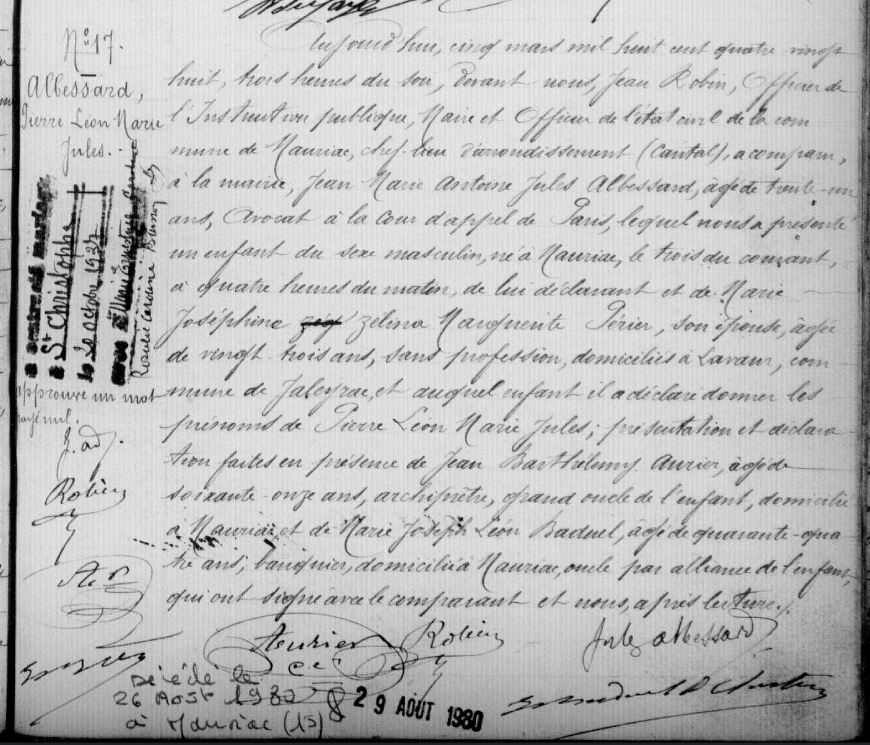 N° 17.
Albessard,
Pierre Léon Marie
Jules.
a contracté mariage
à St Christophe
le 20 octobre 1937
avec
Rosalie Caroline
approuvé un mot
rayé nul.
J. a
Robin
Aujourd'hui, cinq mars mil huit cent quatre vingt
huit, trois heures du soir, Devant nous, Jean Robin, Officier de
l'Instruction publique, Maire et Officier de l'état civil de la com
mune de Mauriac, chef-lieu d'arrondissement (Cantal), a comparu,
à la mairie, Jean Marie Antoine Jules Albessard, âgé de trente-un
ans, Avocat à la Cour d'appel de Paris, lequel nous a présenté
un enfant du sexe masculin, né à Mauriac, le trois du courant,
à quatre heures du matin, de lui déclarant et de Marie
Joséphine Zélina Marguerite Périer, son épouse, âgée
de vingt trois ans, sans profession, domiciliés à Lavaur, com
mune de Jaleyrac, et auquel enfant il a déclaré donner les
prénoms de Pierre Léon Marie Jules; présentation et déclara
tion faites en présence de Jean Barthélemy Aurier, âgé de
soixante-onze ans, archiprêtre, grand oncle de l'enfant, domicilié
à Mauriac et de Marie Joseph Léon Baduel, âgé de quarante-qua
tre ans, banquier, domicilié à Mauriac, oncle par alliance de l'enfant,
qui ont signé avec le comparant et nous, après lecture.
Aurier Robin Jules Albessard
Décédé le
26 Aout 1980
à Mauriac (15)
29 AOUT 1980